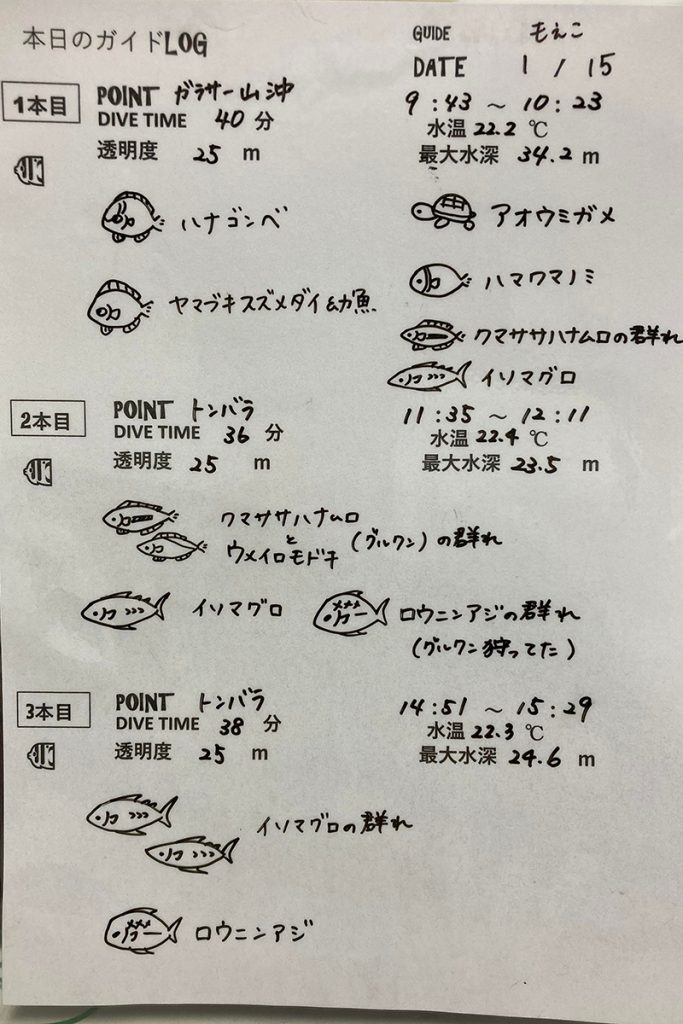 本日のガイドLOG
GUIDE もえこ
DATE 1 / 15
1本目
POINT ガラサー山沖
DIVE TIME 40 分
透明度 25 m
9:43 ～ 10:23
水温 22.2 ℃
最大水深 34.2 m
ハナゴンベ
ヤマブキスズメダイ幼魚
アオウミガメ
ハマクマノミ
クマササハナムロの群れ
イソマグロ
2本目
POINT トンバラ
DIVE TIME 36 分
透明度 25 m
11:35 ～ 12:11
水温 22.4 ℃
最大水深 23.5 m
クマササハナムロ
と
ウメイロモドキ
(グルクン)の群れ
イソマグロ
ロウニンアジの群れ
(グルクン狩ってた)
3本目
POINT トンバラ
DIVE TIME 38 分
透明度 25 m
14:51 ～ 15:29
水温 22.3 ℃
最大水深 24.6 m
イソマグロの群れ
ロウニンアジ